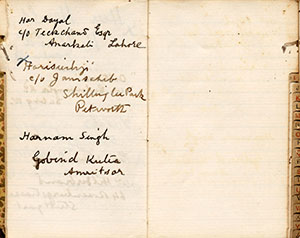 Har Dayal
c/o Teckchand Esqr
Anarkali Lahore
Harisinhji
c/o Jamsaheb
Shillinglee Park
Petworth
Harnam Singh
Gobind Kutia
Amritsar